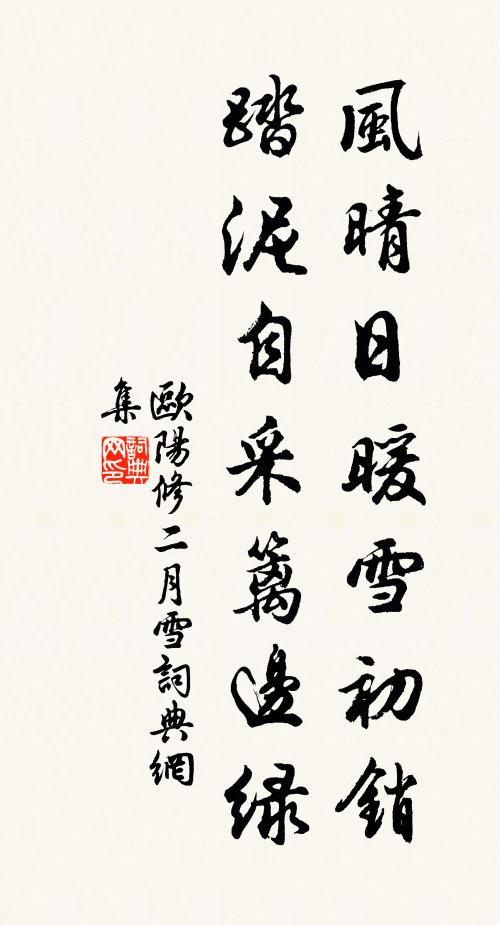 風晴日暖雪初銷
踏泥自采籬邊緑
歐陽修二月雪詞典網
集
詞典網印